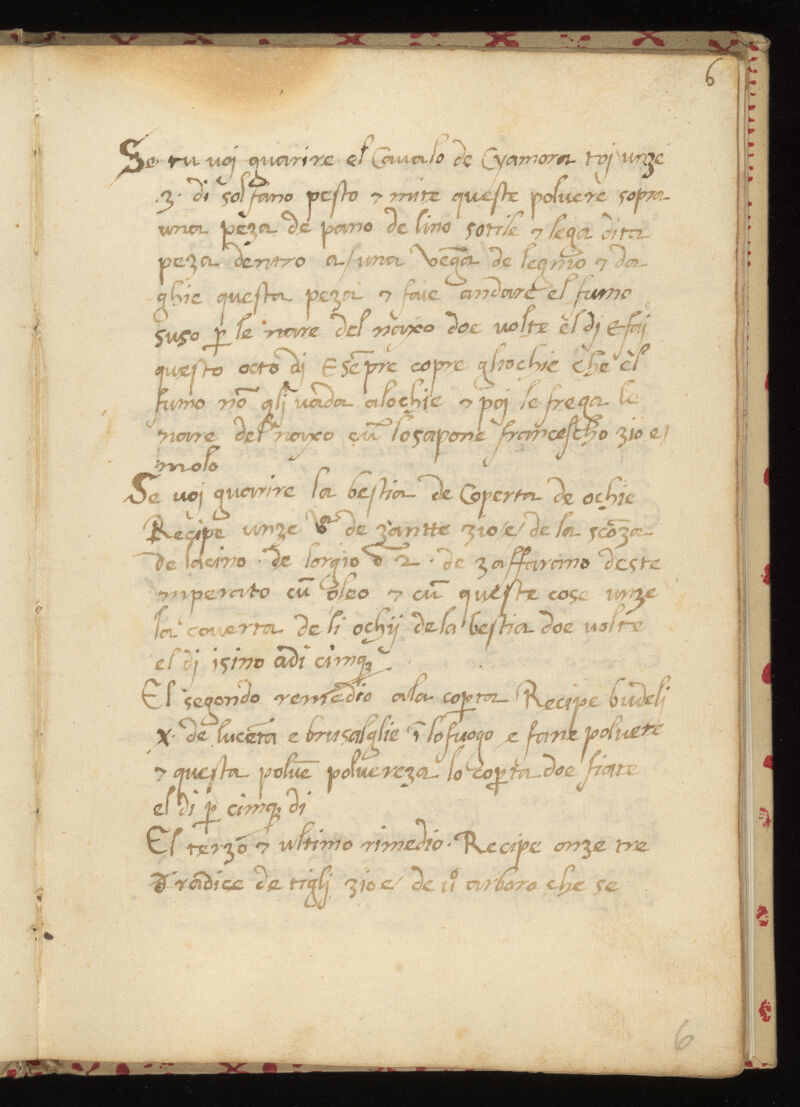 6
Se tu voi guarire el Cavalo de Cyamora toj unze
.3. di solfano pesto et mite queste polvere sopra
una peza de pano de lino sotile et lega dita
peza dentro a una verga de legnio et da
ghie questa peza et faie andare el fumo
suso p̱ le nare del naxo doe volte el dj E faj
questo octo dj E sẽpre copre gliochie che el
fumo nõ glj vada alochie et poj le frega le
nare del naxo cũ lo sapone francescho zioe
molo
Se voj guarire la bestia de Coperta de ochie
Recipe unze de zantte zioe de la scorza
de lacino de lorgio 2. de zaffarano deste
mperato cũ oleo et cũ queste cose unze
la coverta de li ochij dela bestia doe volte
el dj isino adi cimqȝ
El segondo remedio ala cop̱ta Recipe budelj
x. de lucerta e brusalglie ĩ lo fuogo e fane polvere
et questa polvē polvereza lo cop̱ta doe fiate
el di p̱ cimqȝ di
El terzo et ultimo rimedio. Recipe onze tre
radice de tiglj zioe de uo arboro che se
6